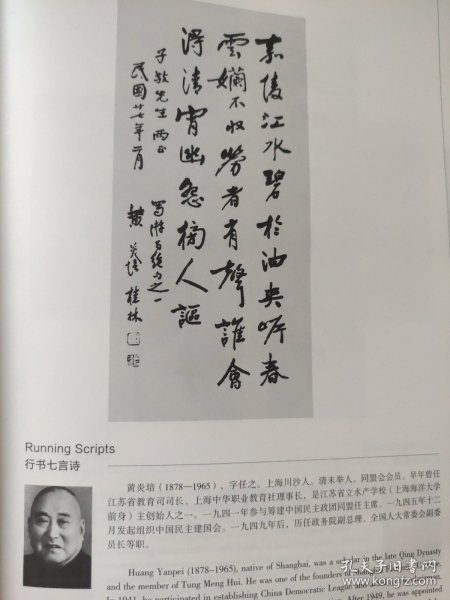 嘉陵江水碧於油夾岸春
雲爛不收勞者有聲誰會
得清宵幽怨榜人謳
蜀游百绝句之一
子敬先生 两正
民國廿七年 月 黃炎培 桂林
Running Scripts
行书七言诗
黄炎培（1878—1965），字任之。上海川沙人。清末举人。同盟会会员，早年曾任
江苏省教育司司长、上海中华职业教育社理事长，是江苏省立水产学校（上海海洋大学
前身）主创始人之一。一九四一年参与筹建中国民主政团同盟任主席。一九四五年十二
月发起组织中国民主建国会。一九四九年后，历任政务院副总理、全国人大常委会副委
员长等职。
Huang Yanpei (1878-1965), native of Shanghai, was a scholar in the late Qing Dynasty
and the member of Tung Meng Hui. He was one of the founders of Shanghai
In 1941, he participated in establishing China Democratic League and After 1949, he was appointed
孔夫子旧书网